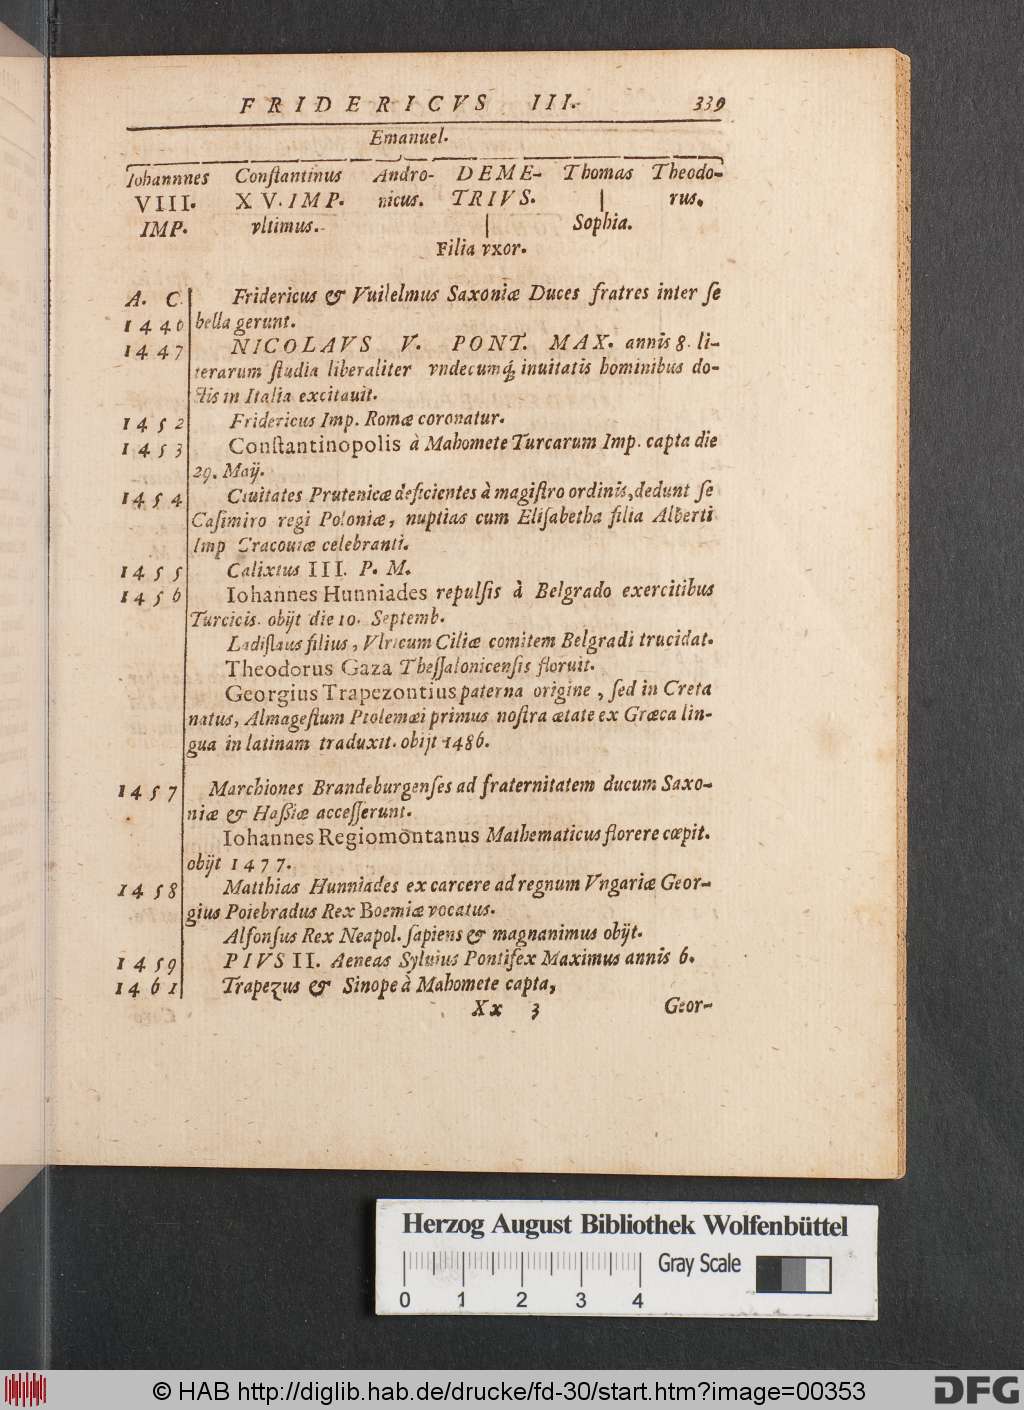 FRIDERICVS III. 339
Emanuel.
Iohannnes Conſtantinus Andro- DEME- Thomas Theodo-
VIII. XV. IMP. nicus. TRIVS. | rus.
IMP. vltimus. | Sophia.
Filia vxor.
A. C. Fridericus & Vuilelmus Saxoniæ Duces fratres inter ſe
1446 bella gerunt.
1447 NICOLAVS V. PONT. MAX. annis 8. li-
terarum ſtudia liberaliter vndecumq́; inuitatis hominibus do-
ctis in Italia excitauit.
1452 Fridericus Imp. Romæ coronatur.
1453 Conſtantinopolis à Mahomete Turcarum Imp. capta die
29. Maij.
1454 Ciuitates Prutenicæ deficientes à magiſtro ordinis, dedunt ſe
Caſimiro regi Poloniæ, nuptias cum Eliſabetha filia Alberti
Imp Cracouiæ celebranti.
1455 Calixtus III. P. M.
1456 Iohannes Hunniades repulſis à Belgrado exercitibus
Turcicis. obijt die 10. Septemb.
Ladiſlaus filius, Vlricum Ciliæ comitem Belgradi trucidat.
Theodorus Gaza Theſſalonicenſis floruit.
Georgius Trapezontius paterna origine, ſed in Creta
natus, Almageſtum Ptolemæi primus noſtra ætate ex Græca lin-
gua in latinam traduxit. obijt 1486.
1457 Marchiones Brandeburgenſes ad fraternitatem ducum Saxo-
niæ & Haßiæ acceſſerunt.
Iohannes Regiomōntanus Mathematicus florere cœpit.
obijt 1477.
1458 Matthias Hunniades ex carcere ad regnum Vngariæ Geor-
gius Poiebradus Rex Boemiæ vocatus.
Alfonſus Rex Neapol. ſapiens & magnanimus obijt.
1459 PIVS II. Aeneas Syluius Pontifex Maximus annis 6.
1461 Trapezus & Sinope à Mahomete capta,
Xx 3 Geor-
Herzog August Bibliothek Wolfenbüttel
Gray Scale
0 1 2 3 4
© HAB http://diglib.hab.de/drucke/fd-30/start.htm?image=00353
DFG